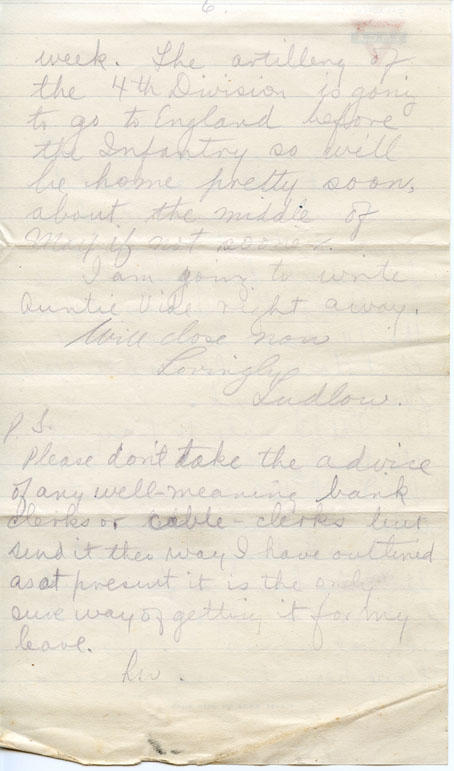 6.
week. The artillery of
the 4th Division is going
to go to England before
the Infantry so will
be home pretty soon,
about the middle of
May if not sooner.
I am going to write
Auntie Vide right away.
Will close now
Lovingly
Ludlow.
P.S.
Please don't take the advice
of any well-meaning bank
clerks or cable-clerks but
send it the way I have outlined
as at present it is the only
sure way of getting it for my
leave.